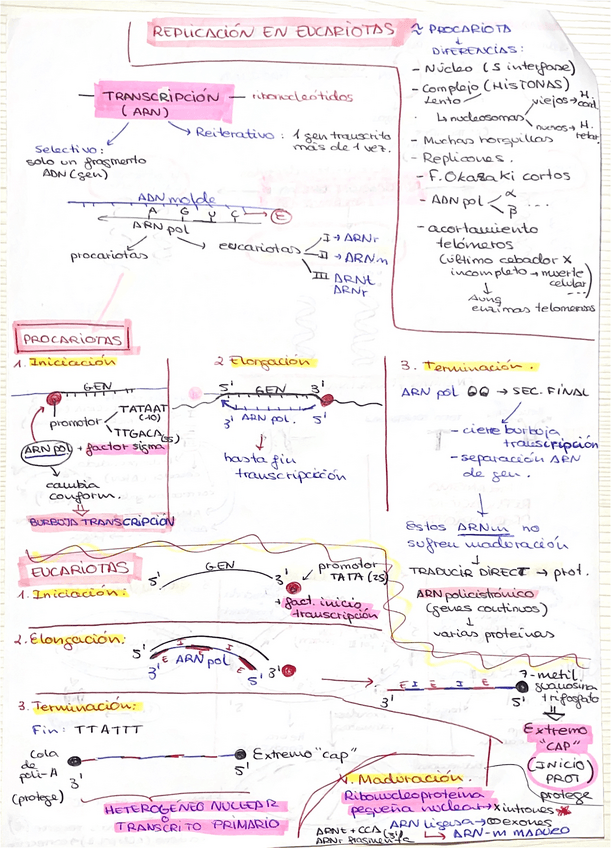 REPLICACIÓN EN EUCARIOTAS ≈ PROCARIOTA
↓
DIFERENCIAS:
- Núcleo (S interfase)
- Complejo (HISTONAS)
lento
↳ nucleosomas
viejos → H. cond.
nuevos → H. retar.
- Muchas horquillas
- Replicones.
- F. Okazaki cortos
- ADN pol α ...
β
- acortamiento
telómeros
(último cebador X
incompleto → muerte
celular)
...
↓
Aunq
enzimas telomerasas
TRANSCRIPCIÓN
(ARN)
ribonucleótidos
Selectivo:
solo un fragmento
ADN (gen)
Reiterativo: 1 gen transcrito
más de 1 vez.
ADN molde
A G U C → E
ARN pol
procariotas
eucariotas
I → ARNr
II → ARNm
III ARNt
ARNr
PROCARIOTAS
1. Iniciación
GEN
promotor
TATAAT
(-10)
TTGACA
(35)
ARN pol + factor sigma
↓
cambia
conform.
⇓
BURBUJA TRANSCRIPCIÓN
2 Elongación
5' GEN 3'
3' ARN pol. 5'
↓
hasta fin
transcripción
3. Terminación.
ARN pol → SEC. FINAL
- cierre burbuja
transcripción
- separación ARN
de gen.
↓
Estos ARNm no
sufren maduración
↓
TRADUCIR DIRECT → prot.
ARN policistrónico
(genes continuos)
↓
varias proteínas
EUCARIOTAS
1. Iniciación:
5' GEN 3'
promotor
TATA (25)
+ fact. inicio
transcripción
2. Elongación:
5' I 3'
E ARN pol E
3' 5'
E I E E
3' 5'
7-metil.
guanosina
trifosfato
⇓
Extremo
"CAP"
(INICIO
PROT)
protege
3. Terminación:
Fin: TTATTT
Cola
de
poli-A
(protege)
3' 5' Extremo "cap"
HETEROGÉNEO NUCLEAR
o
TRANSCRITO PRIMARIO
4. Maduración.
Ribonucleoproteína
pequeña nuclear → X intrones
ARN ligasa → exones
↳ ARN-m MADURO
ARNt + CCA (3')
ARNr fragmenta